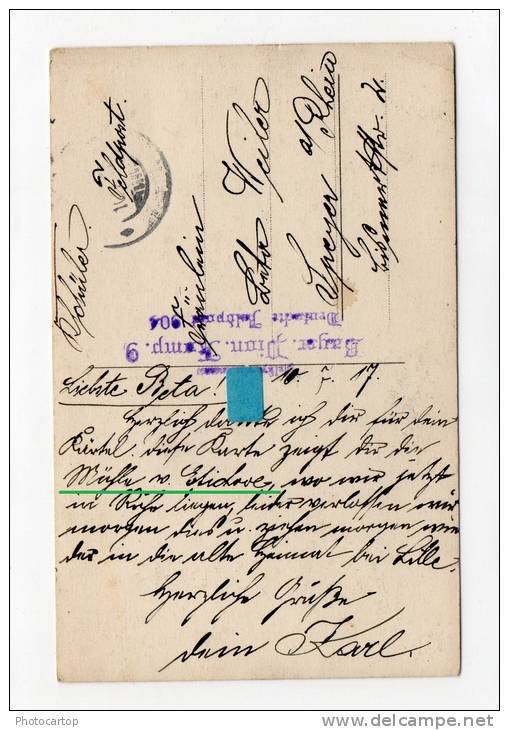 K. Schüler.
Feldpost.
Fräulein
Beta Weiler
Speyer
a/Rhein
Bayer. Pion. Komp. 9
Deutsche Feldpost 904
Liebste Beta! 10. 17.
Herzlich danke ich dir für dein
Kärtel. diese Karte zeigt dir die
Mühle v. Etichove, wo wir jetzt
in Ruhe liegen, leider verlassen wir
morgen dies u. ziehen morgen wie
der in die alte Heimat bei Lille.
Herzliche Grüße
dein Karl.
Photocartop
delcampe.net